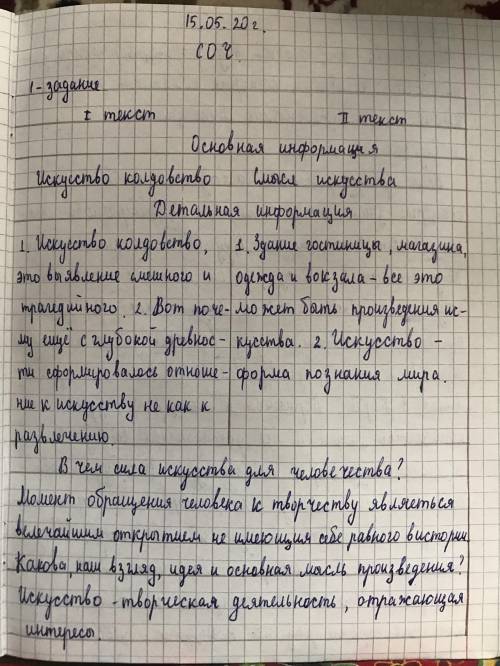 15.05.20г.
СОЧ.
1-задание
I текст II текст
Основная информация
Искусство колдовство Смысл искусства
Детальная информация
1. Искусство колдовство, 1. Здание гостиницы, магазина,
это выявление смешного и одежда и вокзала - все это
трагедийного. 2. Вот поче- может быть произведения ис-
му ещё с глубокой древнос- кусства. 2. Искусство -
ти сформировалось отноше- форма познания мира.
ние к искусству не как к
развлечению.
В чем сила искусства для человечества?
Момент обращения человека к творчеству являеться
величайшим открытием не имеющия себе равного вистории.
Какова, наш взгляд, идея и основная мысль произведения?
Искусство - творческая деятельность, отражающая
интересы.